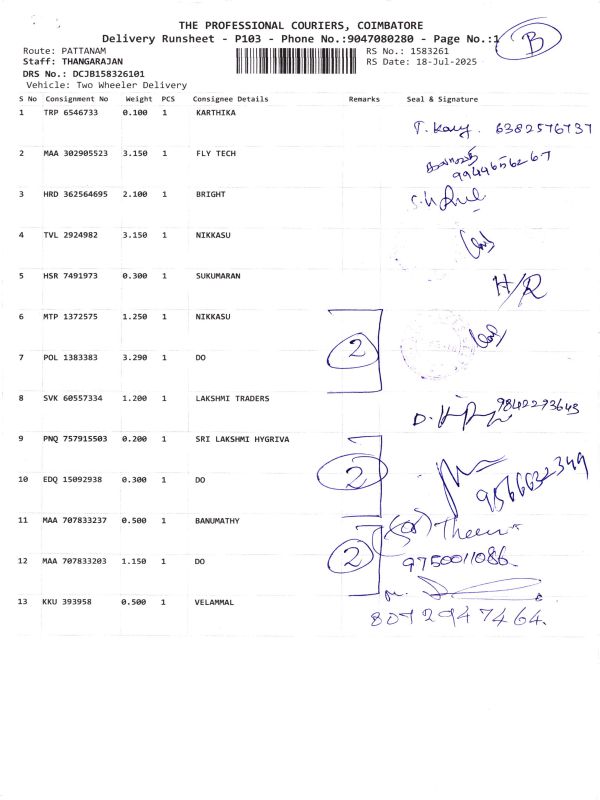 THE PROFESSIONAL COURIERS, COIMBATORE
Delivery Runsheet - P103 - Phone No.:9047080280 - Page No.:1
B
Route: PATTANAM
RS No.: 1583261
Staff: THANGARAJAN
RS Date: 18-Jul-2025
DRS No.: DCJB158326101
Vehicle: Two Wheeler Delivery
S No Consignment No Weight PCS Consignee Details Remarks Seal & Signature
1 TRP 6546733 0.100 1 KARTHIKA
6382576737
2 MAA 302905523 3.150 1 FLY TECH
9944656267
3 HRD 362564695 2.100 1 BRIGHT
4 TVL 2924982 3.150 1 NIKKASU
5 HSR 7491973 0.300 1 SUKUMARAN
H/R
6 MTP 1372575 1.250 1 NIKKASU
2
7 POL 1383383 3.290 1 DO
8 SVK 60557334 1.200 1 LAKSHMI TRADERS
9842293643
9 PNQ 757915503 0.200 1 SRI LAKSHMI HYGRIVA
2
10 EDQ 15092938 0.300 1 DO
9566632349
11 MAA 707833237 0.500 1 BANUMATHY
2
12 MAA 707833203 1.150 1 DO
9750011086
13 KKU 393958 0.500 1 VELAMMAL
8072947464